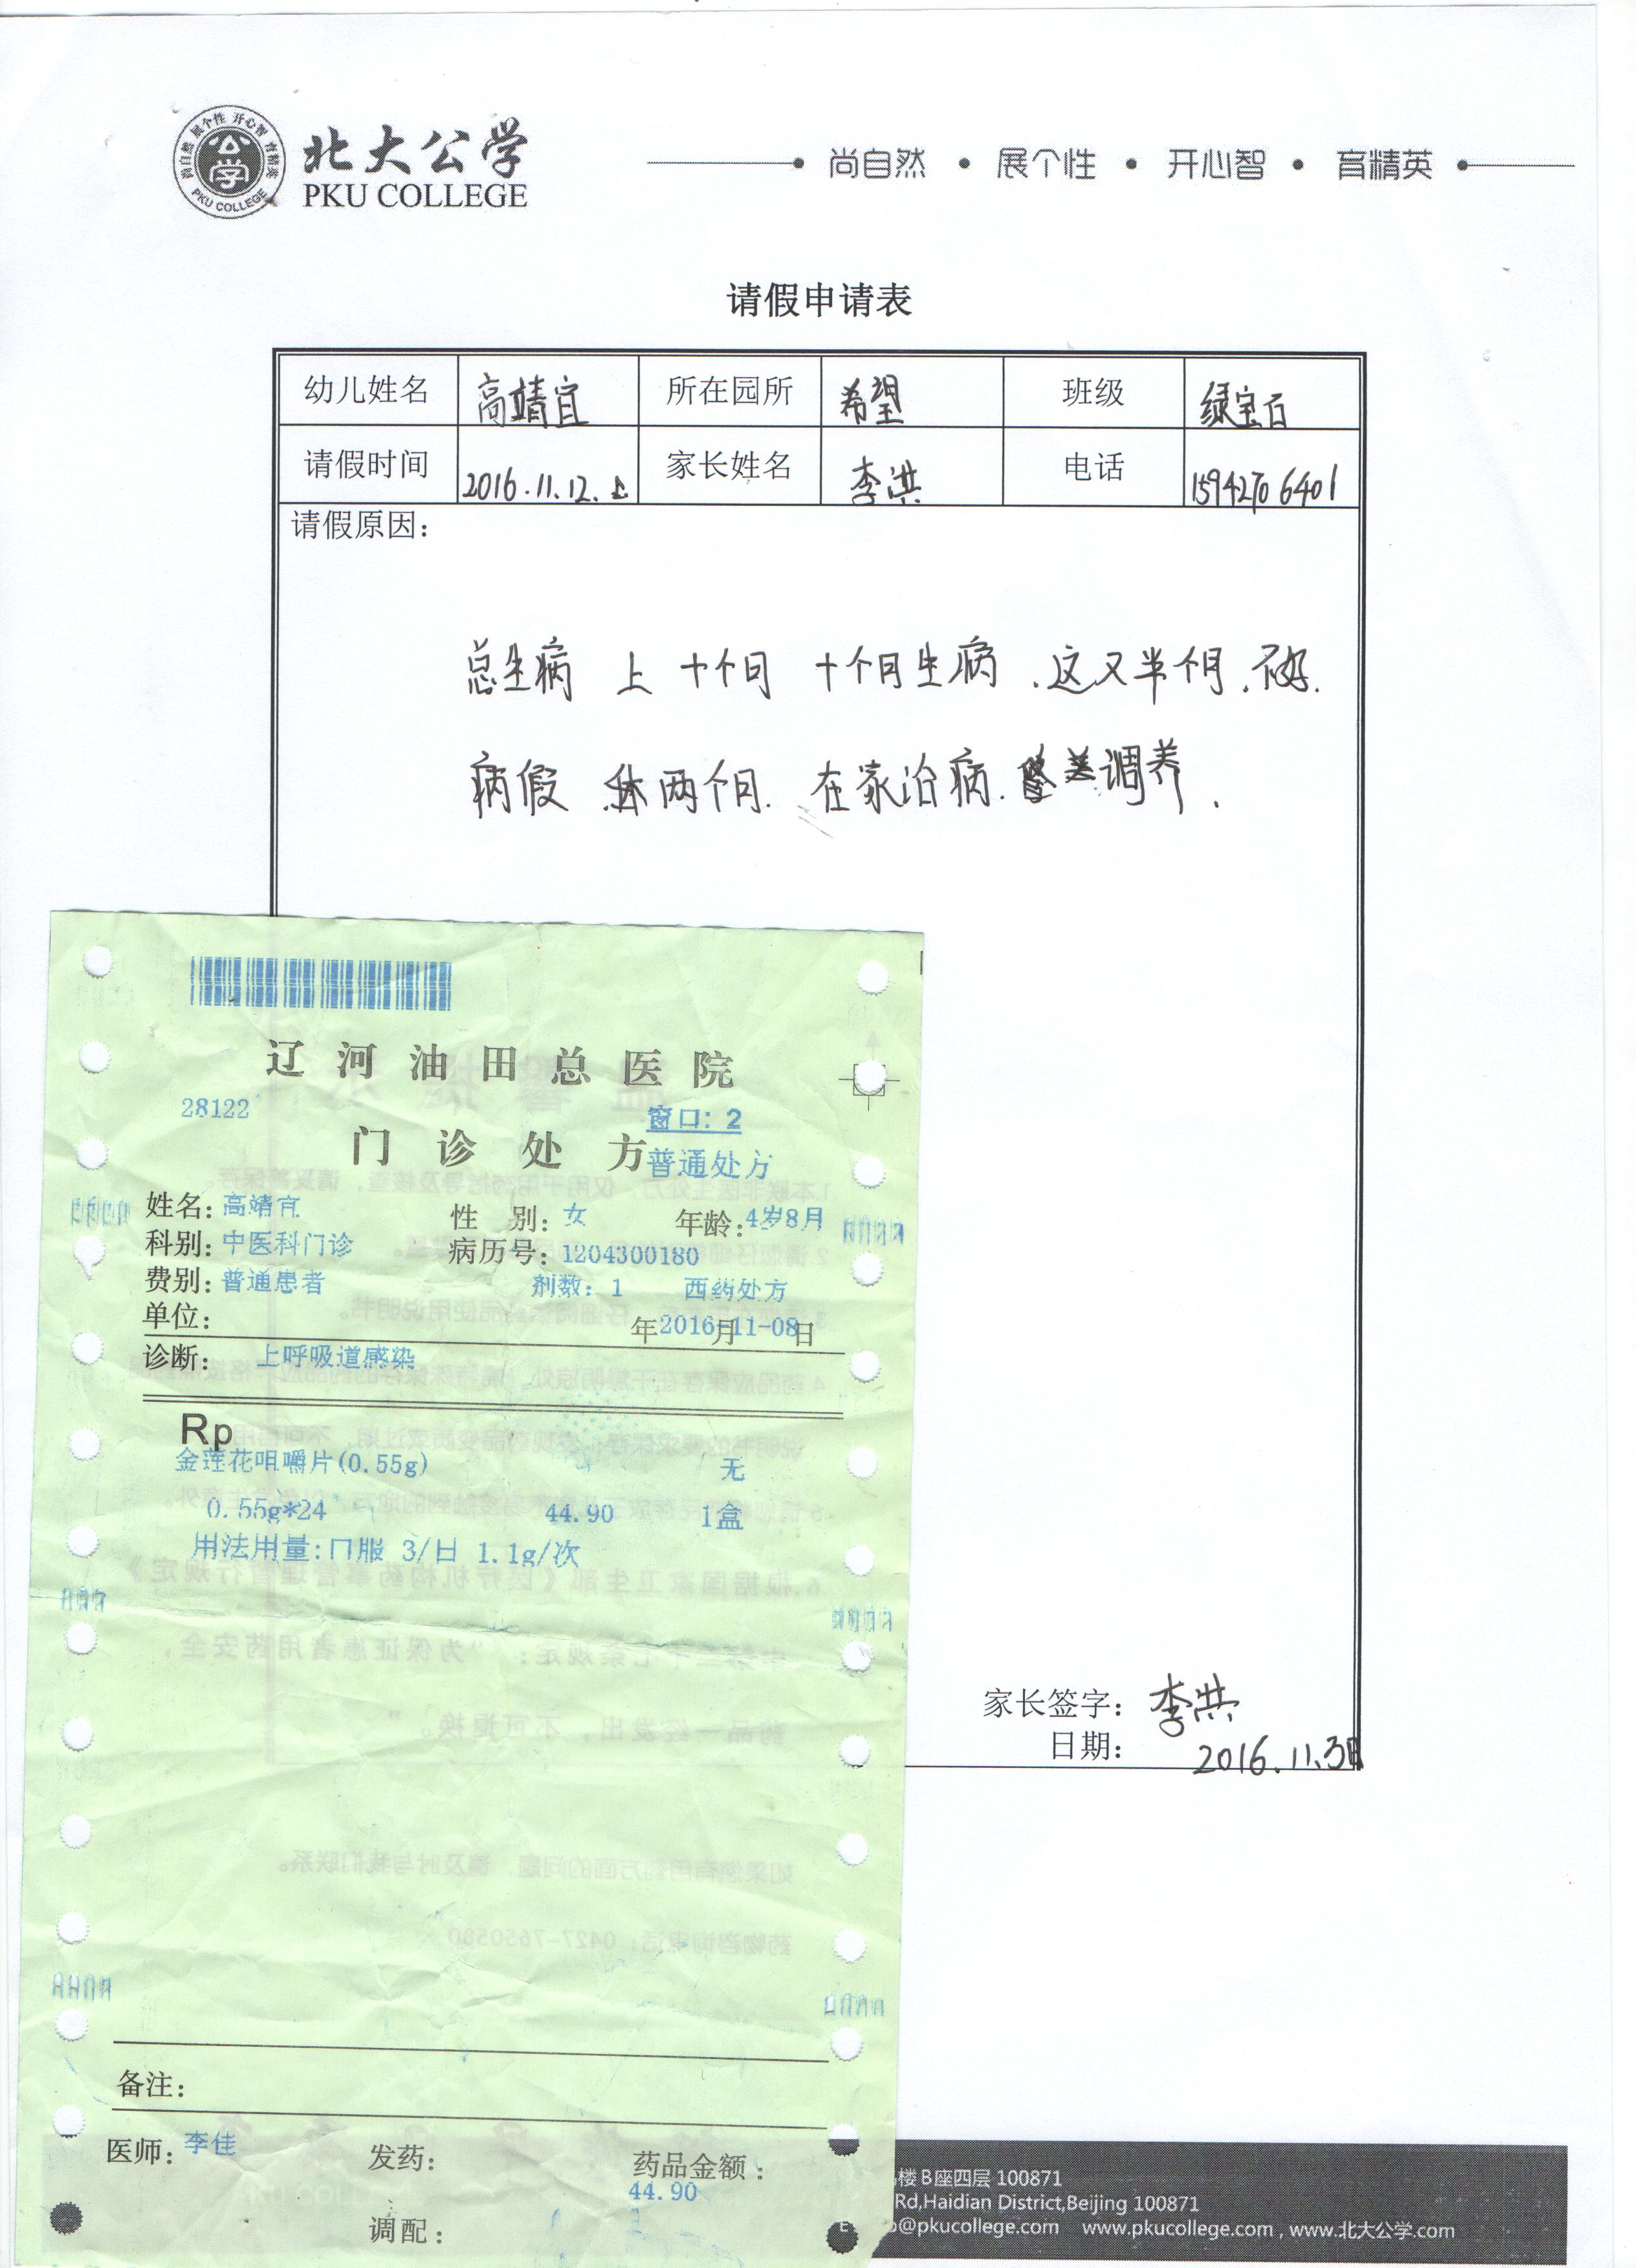 北大公学
PKU COLLEGE
尚自然 • 展个性 • 开心智 • 育精英
请假申请表
幼儿姓名 高靖宜 所在园所 希望 班级 绿宝石
请假时间 2016.11.12. 家长姓名 李洪 电话 15942706401
请假原因:
总生病 上十个月 十个月生病.这又半个月.不好.
病假 休两个月. 在家治病. 调养.
辽河油田总医院
28122
窗口: 2
门诊处方
普通处方
姓名: 高靖宜 性 别: 女 年龄: 4岁8月
科别: 中医科门诊 病历号: 1204300180
费别: 普通患者 剂数: 1 西药处方
单位:
年2016-11-08月日
诊断: 上呼吸道感染
Rp
金莲花咀嚼片(0.55g) 无
0.55g*24 44.90 1盒
用法用量:口服 3/日 1.1g/次
家长签字: 李洪
日期: 2016.11.3日
备注:
医师: 李佳 发药: 药品金额:
44.90
调配:
楼B座四层 100871
Rd,Haidian District,Beijing 100871
@pkucollege.com www.pkucollege.com , www.北大公学.com